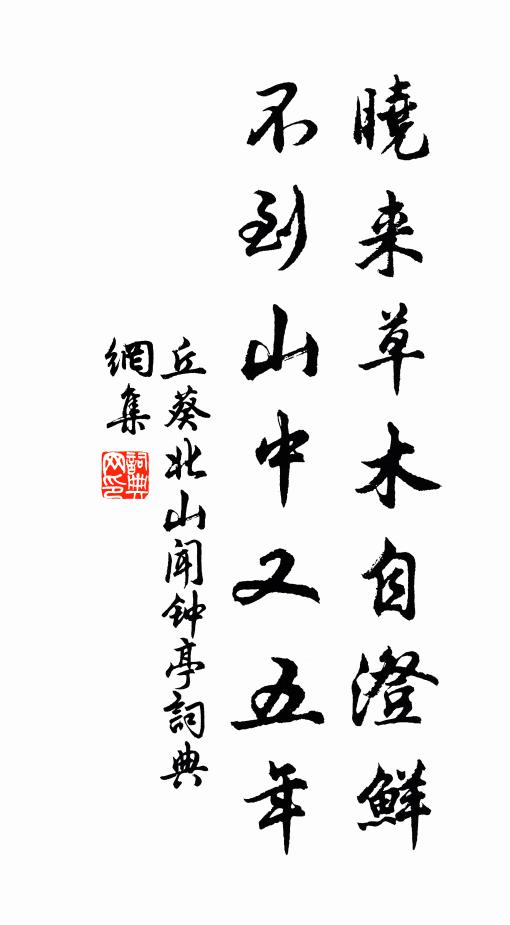 曉来草木自澄鮮
不到山中又五年
丘葵北山闻钟亭詞典
網集
詞典网印